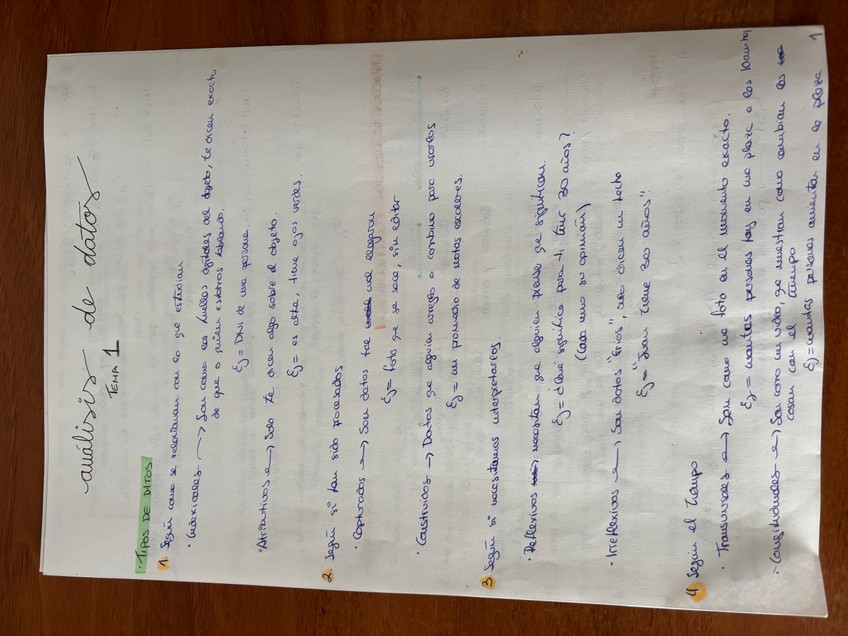 análisis de datos
TEMA 1
· TIPOS DE DATOS
1. Según como se relacionan con lo que estudian
· Indexicales → Son como las huellas digitales del objeto, te dicen exacto
de que o quién estamos hablando.
Ej = DNI de una persona.
· Atributivos → Solo te dicen algo sobre el objeto.
Ej = es alta, tiene ojos verdes.
2. Según si han sido procesados
· Capturados → Son datos tal cual recogieron
Ej = foto que se saca, sin editar
· Construidos → Datos que alguien arregla o combina para usarlos
Ej = un promedio de notas escolares.
3. Según si necesitamos interpretarlos.
· Reflexivos → necesitan que alguien piense que significan.
Ej = ¿Que significa para ti, tener 30 años?
(cada uno su opinión)
· Irreflexivos → Son datos "fríos", solo dicen un hecho
Ej = "Juan tiene 30 años".
4. Según el tiempo
· Transversales → Son como una foto en el momento exacto.
Ej = cuantas personas hay en una plaza a las
· Longitudinales → Son como un video, que muestran como cambian las
cosas con el tiempo
Ej = cuantas personas aumentan en la plaza
1